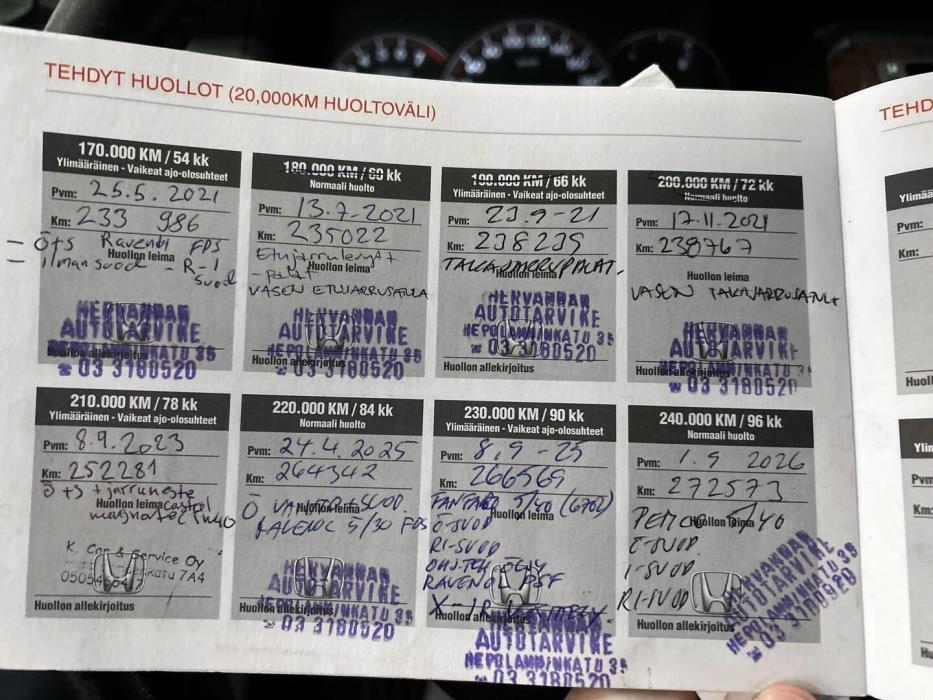 TEHDYT HUOLLOT (20,000KM HUOLTOVÄLI)
TEHD
170.000 KM / 54 kk
Ylimääräinen - Vaikeat ajo-olosuhteet
Pvm: 25.5.2021
Km: 233 986
Ö+S Ravenol FPS
Huollon leima
ilman suod - R-1
suod
HERVANNAN
AUTOTARVIKE
HEPOLAMMINKATU 36
Huollon allekirjoitus
☎ 03 3180520
180.000 KM / 60 kk
Normaali huolto
Pvm: 13.7-2021
Km: 235022
Etujarrulevyt+
Huollon leima
-palat
VASEN ETUJARRUSATULA
HERVANNAN
AUTOTARVIKE
HEPOLAMMINKATU 36
Huollon allekirjoitus
☎ 03 3180520
190.000 KM / 66 kk
Ylimääräinen - Vaikeat ajo-olosuhteet
Pvm: 23.9-21
Km: 238235
Huollon leima
HERVANNAN
AUTOTARVIKE
HEPOLAMMINKATU 36
☎ 03 3180520
Huollon allekirjoitus
200.000 KM / 72 kk
Normaali huolto
Pvm: 17-11.2021
Km: 238767
Huollon leima
VASEN TAKAJARRUSATULA
HERVANNAN
AUTOTARVIKE
HEPOLAMMINKATU 36
Huollon allekirjoitus
☎ 03 3180520
210.000 KM / 78 kk
Ylimääräinen - Vaikeat ajo-olosuhteet
Pvm: 8.9.2023
Km: 252281
Ö+S + jarruneste
Huollon leima castrol
magnatec 5w40
K. Car & Service Oy
7A4
Huollon allekirjoitus
220.000 KM / 84 kk
Normaali huolto
Pvm: 24.4.2025
Km: 264342
Ö VAIHTO+SUOD.
Huollon leima
RAVENOL 5/30 FDS
HERVANNAN
AUTOTARVIKE
HEPOLAMMINKATU 36
Huollon allekirjoitus
☎ 03 3180520
230.000 KM / 90 kk
Ylimääräinen - Vaikeat ajo-olosuhteet
Pvm: 8.9-25
Km: 266569
FANFARO 5/40 (6702)
Huollon leima
Ö-SUOD
RI-SUOD
OHJ.TEH ÖLJY
RAVENOL PSF
Huollon allekirjoitus
HERVANNAN
AUTOTARVIKE
HEPOLAMMINKATU 36
☎ 03 3180520
240.000 KM / 96 kk
Normaali huolto
Pvm: 1.9 2026
Km: 272573
PEMCO 5/40
Huollon leima
Ö-SUOD.
I-SUOD
RI-SUOD
HERVANNAN
AUTOTARVIKE
HEPOLAMMINKATU 36
☎ 03 3180520
Huollon allekirjoitus
Pvm:
Km:
Huoll
Ylin
Pvm
Km: